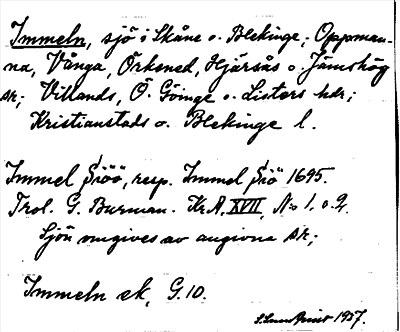 Immeln, sjö i Skåne o. Blekinge; Oppman-
na, Vånga, Örkened, Hjärsås o. Jämshög
sk; Villands, Ö. Göinge o. Listers hdr;
Kristianstads o. Blekinge l.
Immel Siöö, resp. Immel Siö 1695.
Trol. G. Burman. Kr. A. XVII, No 1. o. 2.
Sjön omgives av angivna sk;
Immeln ek, G.10.
1957.